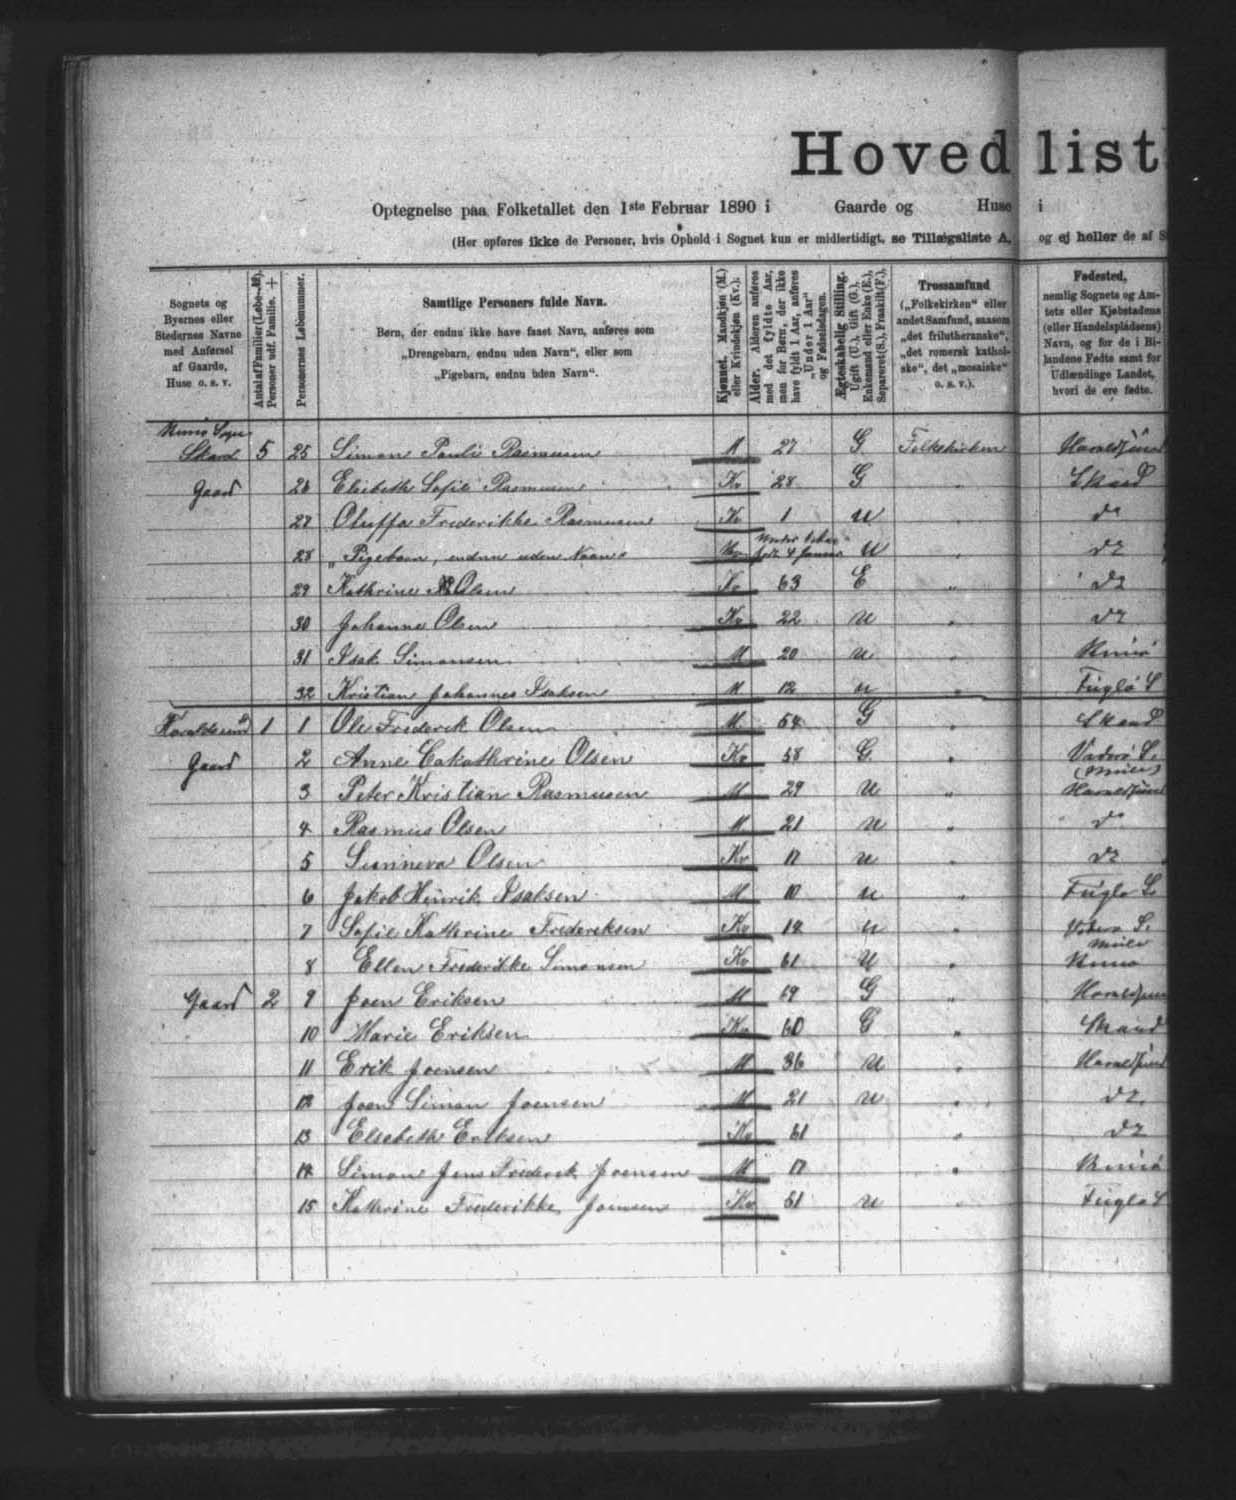 Hovedlist
Optegnelse paa Folketallet den 1ste Februar 1890 i Gaarde og Huse i
(Her opføres ikke de Personer, hvis Ophold i Sognet kun er midlertidigt, se Tillægsliste A, og ej heller de af S
Sognets og Byernes eller Stedernes Navne med Anførsel af Gaarde, Huse o. s. v.
Antal af Familier (Løbe-№). Personer udf. Familie. +
Personernes Løbenummer.
Samtlige Personers fulde Navn.
Børn, der endnu ikke have faaet Navn, anføres som
„Drengebarn, endnu uden Navn“, eller som
„Pigebarn, endnu uden Navn“.
Kjønnet. Mandkjøn (M.) eller Kvindekjøn (Kv.).
Alder. Alderen anføres med det fyldte Aar, men for Børn, der ikke have fyldt 1 Aar, anføres „Under 1 Aar“ og Fødselsdagen.
Ægteskabelig Stilling. Ugift (U.), Gift (G.), Enkemand eller Enke (E.), Separeret (S.), Fraskilt (F.).
Trossamfund
(„Folkekirken“ eller andet Samfund, saasom „det frilutheranske“, „det romersk katholske“, det „mosaiske“ o. s. v.).
Fødested,
nemlig Sognets og Amtets eller Kjøbstadens (eller Handelspladsens) Navn, og for de i Bilandene Fødte samt for Udlændinge Landet, hvori de ere fødte.
Kunø Sogn
Skard 5 25 Simon Pauli Rasmussen M 27 G Folkekirken Haraldsund
Gaard 26 Elsebeth Sofie Rasmussen Kv 28 G " Skard
27 Oluffa Frederikke Rasmussen Kv 1 U " do
28 „Pigebarn, endnu uden Navn“ Kv Under 1 Aar født 4 Januar U " do
29 Kathrine Olsen Kv 63 E " do
30 Johanne Olsen Kv 22 U " do
31 Isak Simonsen M 20 U " Kunø
32 Kristian Johannes Isaksen M 12 U " Fuglø S
Haraldsund 1 1 Ole Frederik Olsen M 54 G " Skard
Gaard 2 Anne Cakathrine Olsen Kv 58 G " Viderø S. (Mule)
3 Peter Kristian Rasmussen M 29 U " Haraldsund
4 Rasmus Olsen M 21 U " do
5 Sunneva Olsen Kv 17 U " do
6 Jakob Hinrik Isaksen M 10 U " Fuglø S.
7 Sofie Kathrine Frederiksen Kv 14 U " Viderø S. Mule
8 Ellen Frederikke Simonsen Kv 61 U " Kunø
Gaard 2 9 Joen Eriksen M 69 G " Haraldsund
10 Marie Eriksen Kv 60 G " Skard
11 Erik Joensen M 36 U " Haraldsund
12 Joen Simon Joensen M 21 U " do
13 Elsebeth Eriksen Kv 61 " do
14 Simon Jens Frederik Joensen M 17 " Kunø
15 Kathrine Frederikke Joensen Kv 51 U " Fuglø S